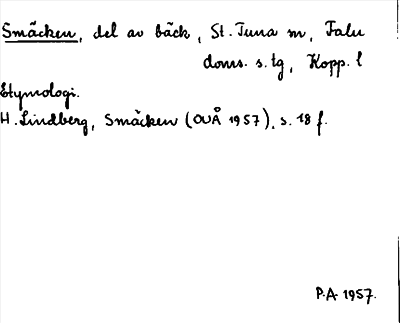 Smäcken, del av bäck, St. Tuna sn, Falu
doms. s. tg, Kopp. l
Etymologi.
H. Lindberg, Smäcken (OUÅ 1957), s. 18 f.
P.A. 1957.